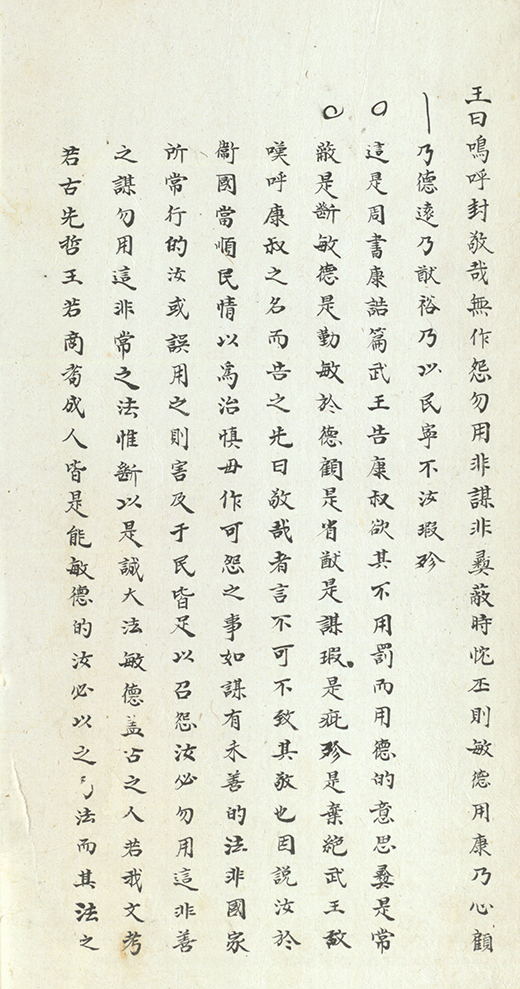 王曰嗚呼封敬哉無作怨勿用非謀非彝蔽時忱丕則敏德用康乃心顧
乃德遠乃猷裕乃以民寧不汝瑕殄
這是周書康誥篇武王告康叔欲其不用罰而用德的意思彝是常
蔽是斷敏德是勤敏於德顧是省猷是謀瑕是疵殄是棄絶武王發
嘆呼康叔之名而告之先曰敬哉者言不可不致其敬也因説汝於
衞國當順民情以爲治慎毋作可怨之事如謀有未善的法非國家
所常行的汝或誤用之則害及于民皆足以召怨汝必勿用這非善
之謀勿用這非常之法惟斷以是誠大法敏德盖古之人若我文考
若古先哲王若商耉成人皆是能敏德的汝必以之爲法而其法之